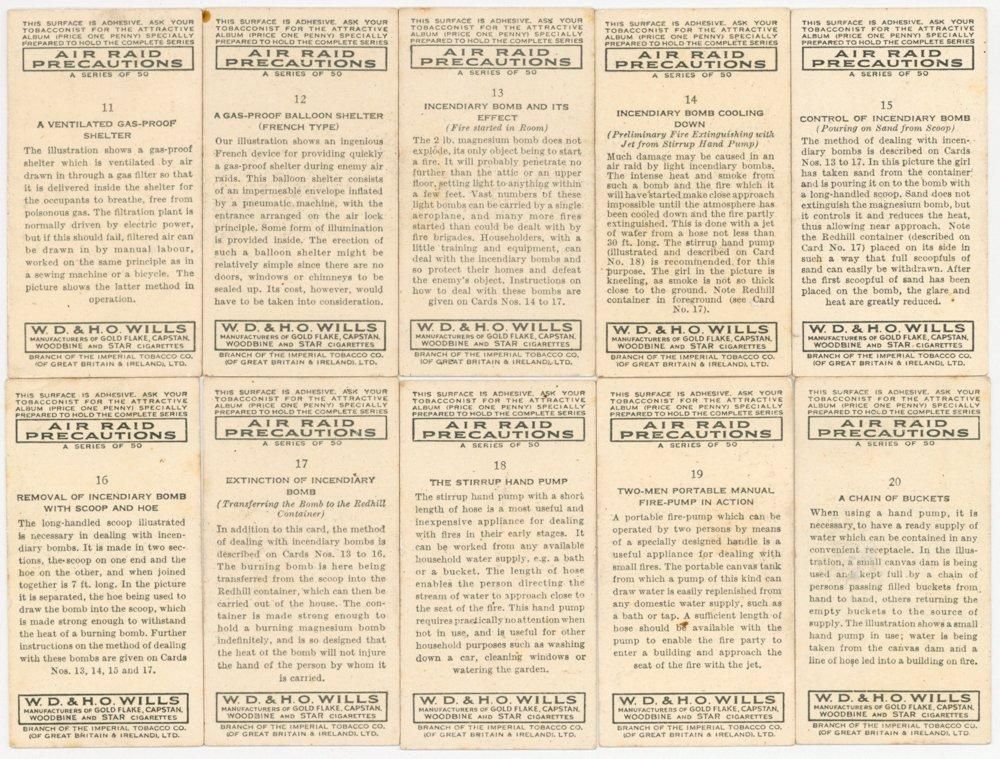 THIS SURFACE IS ADHESIVE. ASK YOUR
TOBACCONIST FOR THE ATTRACTIVE
ALBUM (PRICE ONE PENNY) SPECIALLY
PREPARED TO HOLD THE COMPLETE SERIES
AIR RAID
PRECAUTIONS
A SERIES OF 50
11
A VENTILATED GAS-PROOF
SHELTER
The illustration shows a gas-proof
shelter which is ventilated by air
drawn in through a gas filter so that
it is delivered inside the shelter for
the occupants to breathe, free from
poisonous gas. The filtration plant is
normally driven by electric power,
but if this should fail, filtered air can
be drawn in by manual labour,
worked on the same principle as in
a sewing machine or a bicycle. The
picture shows the latter method in
operation.
W. D. & H. O. WILLS
MANUFACTURERS OF GOLD FLAKE, CAPSTAN,
WOODBINE AND STAR CIGARETTES
BRANCH OF THE IMPERIAL TOBACCO CO.
(OF GREAT BRITAIN & IRELAND), LTD.
THIS SURFACE IS ADHESIVE. ASK YOUR
TOBACCONIST FOR THE ATTRACTIVE
ALBUM (PRICE ONE PENNY) SPECIALLY
PREPARED TO HOLD THE COMPLETE SERIES
AIR RAID
PRECAUTIONS
A SERIES OF 50
12
A GAS-PROOF BALLOON SHELTER
(FRENCH TYPE)
Our illustration shows an ingenious
French device for providing quickly
a gas-proof shelter during enemy air
raids. This balloon shelter consists
of an impermeable envelope inflated
by a pneumatic machine, with the
entrance arranged on the air lock
principle. Some form of illumination
is provided inside. The erection of
such a balloon shelter might be
relatively simple since there are no
doors, windows or chimneys to be
sealed up. Its cost, however, would
have to be taken into consideration.
W. D. & H. O. WILLS
MANUFACTURERS OF GOLD FLAKE, CAPSTAN,
WOODBINE AND STAR CIGARETTES
BRANCH OF THE IMPERIAL TOBACCO CO.
(OF GREAT BRITAIN & IRELAND), LTD.
THIS SURFACE IS ADHESIVE. ASK YOUR
TOBACCONIST FOR THE ATTRACTIVE
ALBUM (PRICE ONE PENNY) SPECIALLY
PREPARED TO HOLD THE COMPLETE SERIES
AIR RAID
PRECAUTIONS
A SERIES OF 50
13
INCENDIARY BOMB AND ITS
EFFECT
(Fire started in Room)
The 2 lb. magnesium bomb does not
explode, its only object being to start
a fire. It will probably penetrate no
further than the attic or an upper
floor, setting light to anything within
a few feet. Vast numbers of these
light bombs can be carried by a single
aeroplane, and many more fires
started than could be dealt with by
fire brigades. Householders, with a
little training and equipment, can
deal with the incendiary bombs and
so protect their homes and defeat
the enemy's object. Instructions on
how to deal with these bombs are
given on Cards Nos. 14 to 17.
W. D. & H. O. WILLS
MANUFACTURERS OF GOLD FLAKE, CAPSTAN,
WOODBINE AND STAR CIGARETTES
BRANCH OF THE IMPERIAL TOBACCO CO.
(OF GREAT BRITAIN & IRELAND), LTD.
THIS SURFACE IS ADHESIVE. ASK YOUR
TOBACCONIST FOR THE ATTRACTIVE
ALBUM (PRICE ONE PENNY) SPECIALLY
PREPARED TO HOLD THE COMPLETE SERIES
AIR RAID
PRECAUTIONS
A SERIES OF 50
14
INCENDIARY BOMB COOLING
DOWN
(Preliminary Fire Extinguishing with
Jet from Stirrup Hand Pump)
Much damage may be caused in an
air raid by light incendiary bombs.
The intense heat and smoke from
such a bomb and the fire which it
will have started make close approach
impossible until the atmosphere has
been cooled down and the fire partly
extinguished. This is done with a jet
of water from a hose not less than
30 ft. long. The stirrup hand pump
(illustrated and described on Card
No. 18) is recommended for this
purpose. The girl in the picture is
kneeling, as smoke is not so thick
close to the ground. Note Redhill
container in foreground (see Card
No. 17).
W. D. & H. O. WILLS
MANUFACTURERS OF GOLD FLAKE, CAPSTAN,
WOODBINE AND STAR CIGARETTES
BRANCH OF THE IMPERIAL TOBACCO CO.
(OF GREAT BRITAIN & IRELAND), LTD.
THIS SURFACE IS ADHESIVE. ASK YOUR
TOBACCONIST FOR THE ATTRACTIVE
ALBUM (PRICE ONE PENNY) SPECIALLY
PREPARED TO HOLD THE COMPLETE SERIES
AIR RAID
PRECAUTIONS
A SERIES OF 50
15
CONTROL OF INCENDIARY BOMB
(Pouring on Sand from Scoop)
The method of dealing with incen-
diary bombs is described on Cards
Nos. 13 to 17. In this picture the girl
has taken sand from the container
and is pouring it on to the bomb with
a long-handled scoop. Sand does not
extinguish the magnesium bomb, but
it controls it and reduces the heat,
thus allowing near approach. Note
the Redhill container (described on
Card No. 17) placed on its side in
such a way that full scoopfuls of
sand can easily be withdrawn. After
the first scoopful of sand has been
placed on the bomb, the glare and
heat are greatly reduced.
W. D. & H. O. WILLS
MANUFACTURERS OF GOLD FLAKE, CAPSTAN,
WOODBINE AND STAR CIGARETTES
BRANCH OF THE IMPERIAL TOBACCO CO.
(OF GREAT BRITAIN & IRELAND), LTD.
THIS SURFACE IS ADHESIVE. ASK YOUR
TOBACCONIST FOR THE ATTRACTIVE
ALBUM (PRICE ONE PENNY) SPECIALLY
PREPARED TO HOLD THE COMPLETE SERIES
AIR RAID
PRECAUTIONS
A SERIES OF 50
16
REMOVAL OF INCENDIARY BOMB
WITH SCOOP AND HOE
The long-handled scoop illustrated
is necessary in dealing with incen-
diary bombs. It is made in two sec-
tions, the scoop on one end and the
hoe on the other, and when joined
together is 7 ft. long. In the picture
it is separated, the hoe being used to
draw the bomb into the scoop, which
is made strong enough to withstand
the heat of a burning bomb. Further
instructions on the method of dealing
with these bombs are given on Cards
Nos. 13, 14, 15 and 17.
W. D. & H. O. WILLS
MANUFACTURERS OF GOLD FLAKE, CAPSTAN,
WOODBINE AND STAR CIGARETTES
BRANCH OF THE IMPERIAL TOBACCO CO.
(OF GREAT BRITAIN & IRELAND), LTD.
THIS SURFACE IS ADHESIVE. ASK YOUR
TOBACCONIST FOR THE ATTRACTIVE
ALBUM (PRICE ONE PENNY) SPECIALLY
PREPARED TO HOLD THE COMPLETE SERIES
AIR RAID
PRECAUTIONS
A SERIES OF 50
17
EXTINCTION OF INCENDIARY
BOMB
(Transferring the Bomb to the Redhill
Container)
In addition to this card, the method
of dealing with incendiary bombs is
described on Cards Nos. 13 to 16.
The burning bomb is here being
transferred from the scoop into the
Redhill container, which can then be
carried out of the house. The con-
tainer is made strong enough to
hold a burning magnesium bomb
indefinitely, and is so designed that
the heat of the bomb will not injure
the hand of the person by whom it
is carried.
W. D. & H. O. WILLS
MANUFACTURERS OF GOLD FLAKE, CAPSTAN,
WOODBINE AND STAR CIGARETTES
BRANCH OF THE IMPERIAL TOBACCO CO.
(OF GREAT BRITAIN & IRELAND), LTD.
THIS SURFACE IS ADHESIVE. ASK YOUR
TOBACCONIST FOR THE ATTRACTIVE
ALBUM (PRICE ONE PENNY) SPECIALLY
PREPARED TO HOLD THE COMPLETE SERIES
AIR RAID
PRECAUTIONS
A SERIES OF 50
18
THE STIRRUP HAND PUMP
The stirrup hand pump with a short
length of hose is a most useful and
inexpensive appliance for dealing
with fires in their early stages. It
can be worked from any available
household water supply, e.g. a bath
or a bucket. The length of hose
enables the person directing the
stream of water to approach close to
the seat of the fire. This hand pump
requires practically no attention when
not in use, and is useful for other
household purposes such as washing
down a car, cleaning windows or
watering the garden.
W. D. & H. O. WILLS
MANUFACTURERS OF GOLD FLAKE, CAPSTAN,
WOODBINE AND STAR CIGARETTES
BRANCH OF THE IMPERIAL TOBACCO CO.
(OF GREAT BRITAIN & IRELAND), LTD.
THIS SURFACE IS ADHESIVE. ASK YOUR
TOBACCONIST FOR THE ATTRACTIVE
ALBUM (PRICE ONE PENNY) SPECIALLY
PREPARED TO HOLD THE COMPLETE SERIES
AIR RAID
PRECAUTIONS
A SERIES OF 50
19
TWO-MEN PORTABLE MANUAL
FIRE-PUMP IN ACTION
A portable fire-pump which can be
operated by two persons by means
of a specially designed handle is a
useful appliance for dealing with
small fires. The portable canvas tank
from which a pump of this kind can
draw water is easily replenished from
any domestic water supply, such as
a bath or tap. A sufficient length of
hose should be available with the
pump to enable the fire party to
enter a building and approach the
seat of the fire with the jet.
W. D. & H. O. WILLS
MANUFACTURERS OF GOLD FLAKE, CAPSTAN,
WOODBINE AND STAR CIGARETTES
BRANCH OF THE IMPERIAL TOBACCO CO.
(OF GREAT BRITAIN & IRELAND), LTD.
THIS SURFACE IS ADHESIVE. ASK YOUR
TOBACCONIST FOR THE ATTRACTIVE
ALBUM (PRICE ONE PENNY) SPECIALLY
PREPARED TO HOLD THE COMPLETE SERIES
AIR RAID
PRECAUTIONS
A SERIES OF 50
20
A CHAIN OF BUCKETS
When using a hand pump, it is
necessary to have a ready supply of
water which can be contained in any
convenient receptacle. In the illus-
tration, a small canvas dam is being
used and kept full by a chain of
persons passing filled buckets from
hand to hand, others returning the
empty buckets to the source of
supply. The illustration shows a small
hand pump in use; water is being
taken from the canvas dam and a
line of hose led into a building on fire.
W. D. & H. O. WILLS
MANUFACTURERS OF GOLD FLAKE, CAPSTAN,
WOODBINE AND STAR CIGARETTES
BRANCH OF THE IMPERIAL TOBACCO CO.
(OF GREAT BRITAIN & IRELAND), LTD.